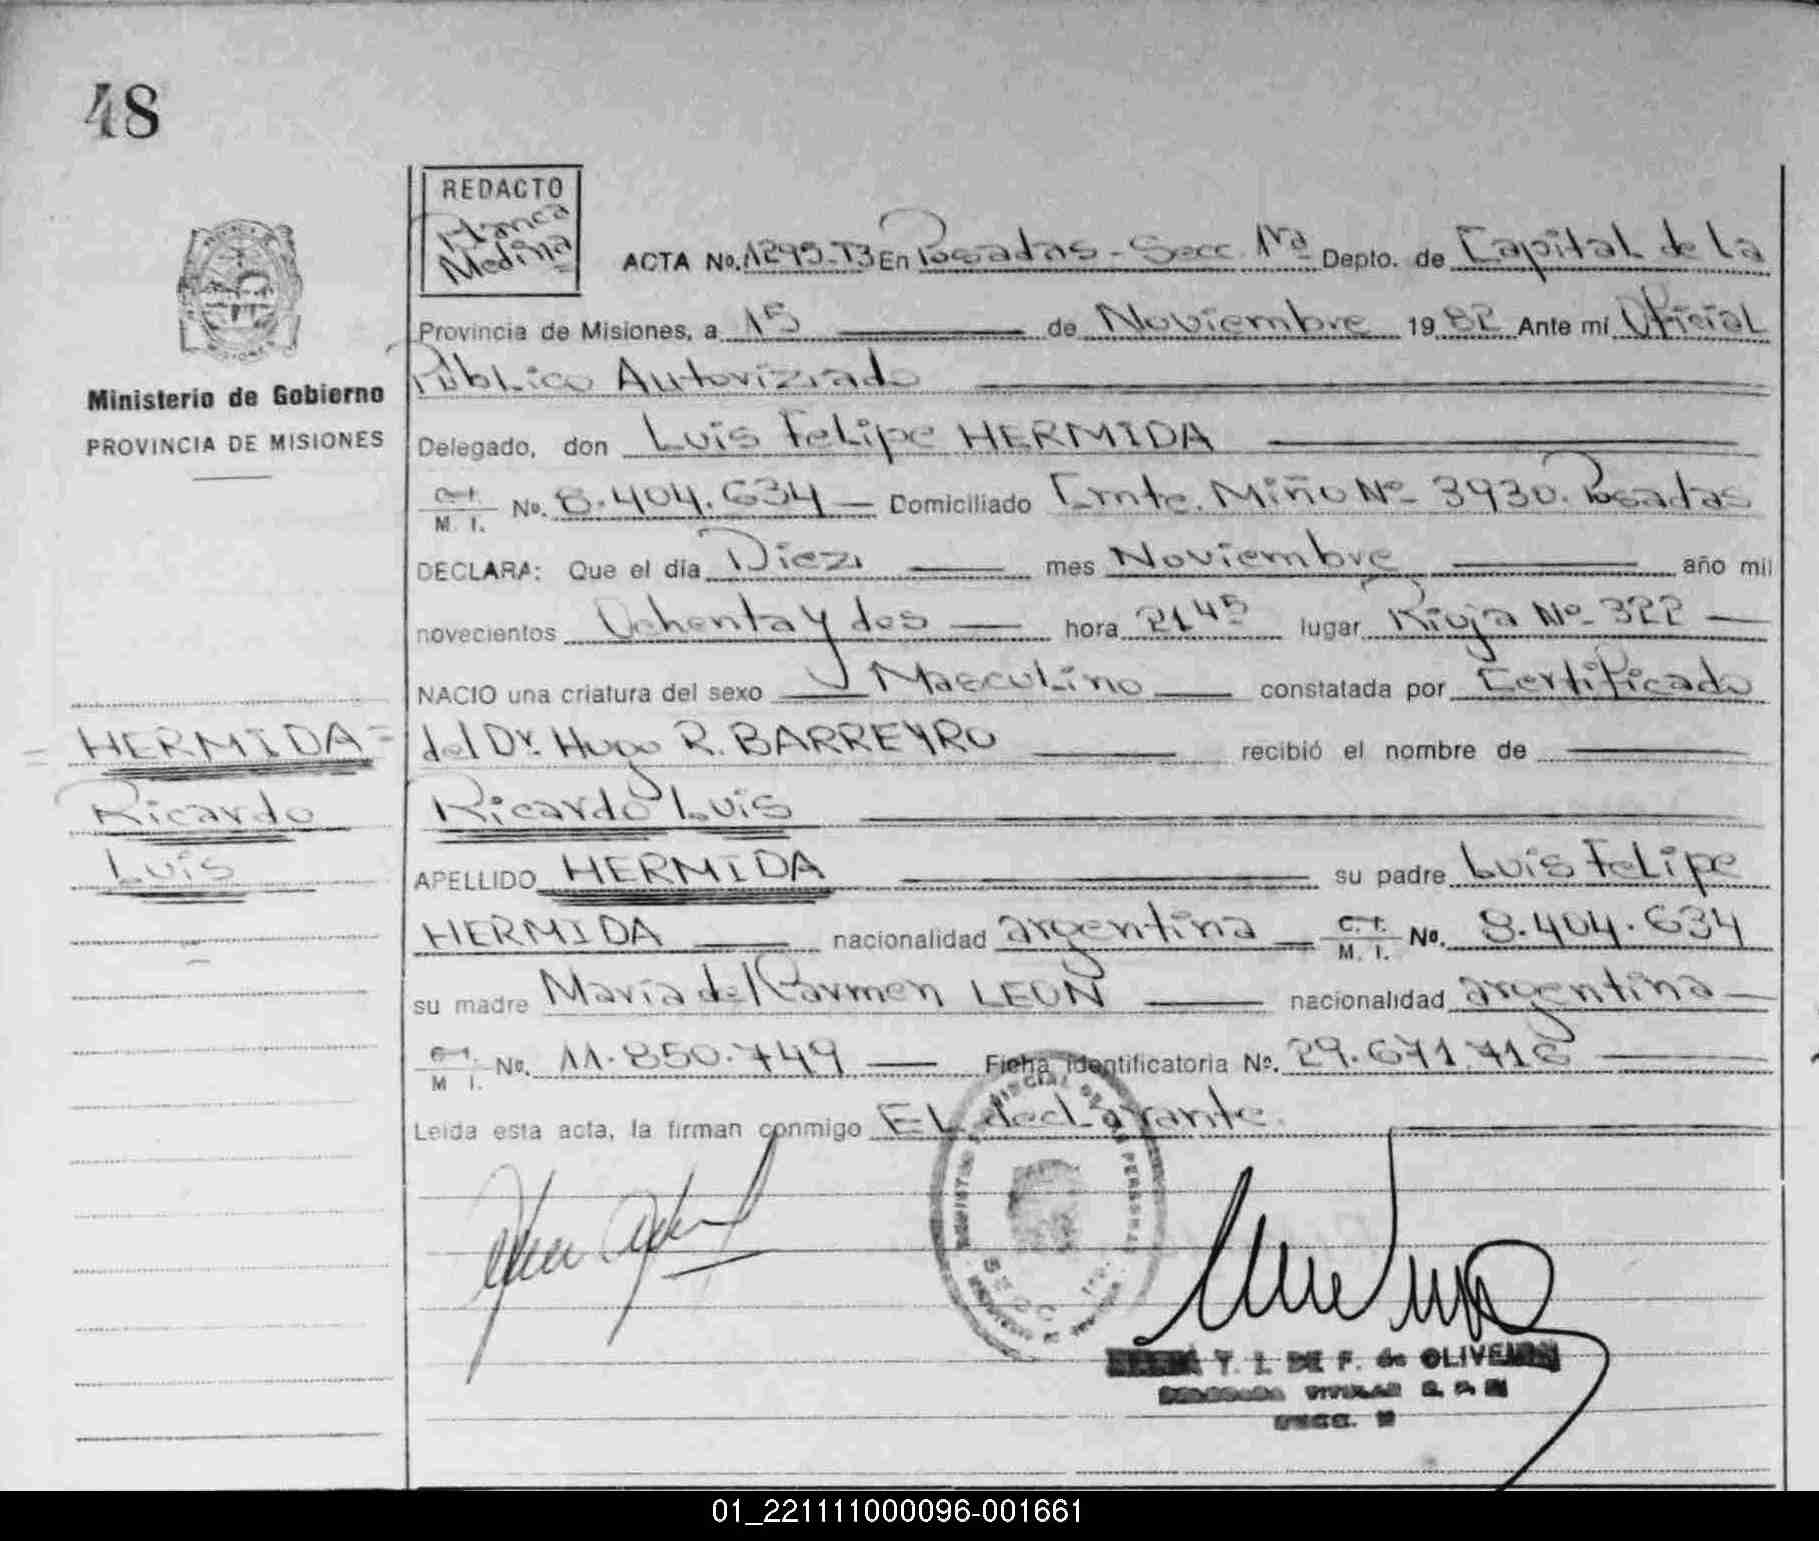 48
REDACTO
Blanca
Medina
ACTA No. 1295-T3 En Posadas - Secc. 1ra Depto. de Capital de la
Provincia de Misiones, a 15 de Noviembre 1982 Ante mí Oficial
Público Autorizado
Ministerio de Gobierno
PROVINCIA DE MISIONES
Delegado, don Luis Felipe HERMIDA
C. I. M. I. No. 8.404.634 - Domiciliado Cmte. Miño Nº 3930. Posadas
DECLARA: Que el día Diez mes Noviembre año mil
novecientos Ochenta y dos hora 21 45 lugar Rioja Nº 322
NACIO una criatura del sexo Masculino constatada por Certificado
del Dr. Hugo R. BARREYRO recibió el nombre de
Ricardo Luis
APELLIDO HERMIDA su padre Luis Felipe
HERMIDA nacionalidad argentina C. I. M. I. No. 8.404.634
su madre María del Carmen LEON nacionalidad argentina
C. I. M. I. No. 11.850.749 Ficha Identificatoria No. 29.671.718
Leída esta acta, la firman conmigo EL declarante.
= HERMIDA =
Ricardo
Luis
T. I. DE F. de OLIVEIRA
DELEGADA TITULAR
SECC.
01_221111000096-001661